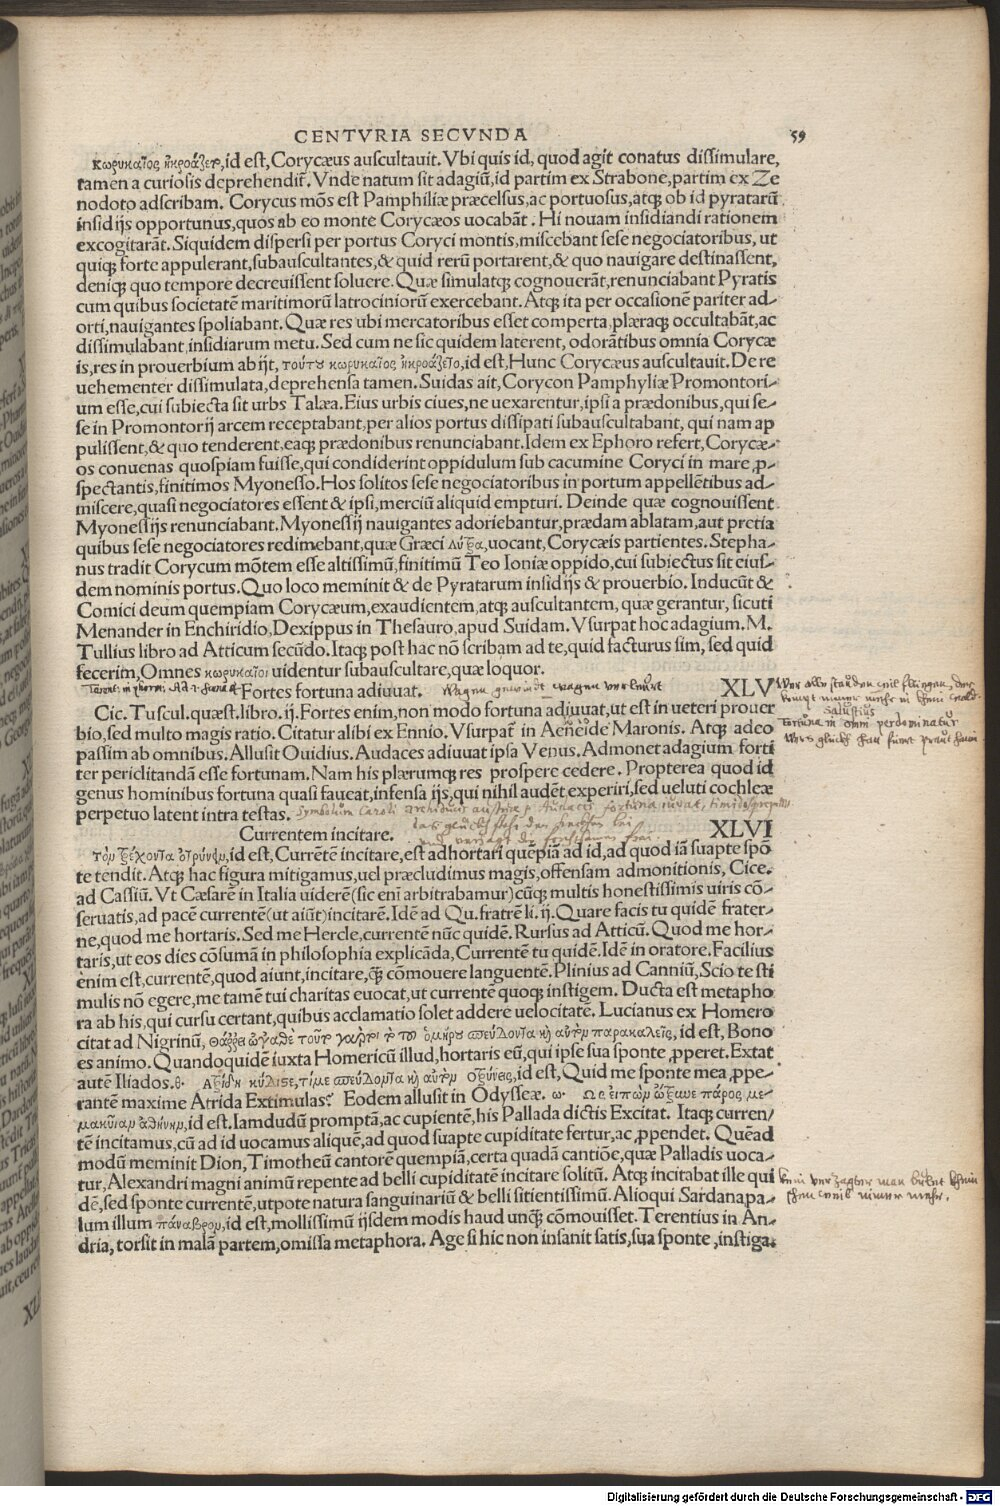 CENTVRIA SECVNDA 59
Κωρυκαῖος ἠκροάζετο, id est, Corycæus auscultauit. Vbi quis id, quod agit conatus dissimulare,
tamen a curiosis deprehendit̃. Vnde natum sit adagiũ, id partim ex Strabone, partim ex Ze
nodoto adscribam. Corycus mõs est Pamphiliæ præcelsus, ac portuosus, atqꝫ ob id pyratarũ
insidijs opportunus, quos ab eo monte Corycæos uocabãt. Hi nouam insidiandi rationem
excogitarãt. Siquidem dispersi per portus Coryci montis, miscebant sese negociatoribus, ut
quiqꝫ forte appulerant, subauscultantes, & quid rerũ portarent, & quo nauigare destinassent,
deniqꝫ quo tempore decreuissent soluere. Quæ simulatqꝫ cognouerãt, renunciabant Pyratis
cum quibus societatẽ maritimorũ latrociniorũ exercebant. Atqꝫ ita per occasionẽ pariter ad-
orti, nauigantes spoliabant. Quæ res ubi mercatoribus esset comperta, plæraqꝫ occultabãt, ac
dissimulabant, insidiarum metu. Sed cum ne sic quidem laterent, odorãtibus omnia Corycæ
is, res in prouerbium abijt, τούτου κωρυκαῖος ἠκροάζετο, id est, Hunc Corycæus auscultauit. De re
uehementer dissimulata, deprehensa tamen. Suidas ait, Corycon Pamphyliæ Promontori-
um esse, cui subiecta sit urbs Talæa. Eius urbis ciues, ne uexarentur, ipsi a prædonibus, qui se-
se in Promontorij arcem receptabant, per alios portus dissipati subauscultabant, qui nam ap
pulissent, & quo tenderent, eaqꝫ prædonibus renunciabant. Idem ex Ephoro refert, Corycæ-
os conuenas quospiam fuisse, qui condiderint oppidulum sub cacumine Coryci in mare ꝓ-
spectantis, finitimos Myonesso. Hos solitos sese negociatoribus in portum appellẽtibus ad-
miscere, quasi negociatores essent & ipsi, merciũ aliquid empturi. Deinde quæ cognouissent
Myonessijs renunciabant. Myonessij nauigantes adoriebantur, prædam ablatam, aut pretia
quibus sese negociatores redimebant, quæ Græci λύτρα, uocant, Corycæis partientes. Stepha-
nus tradit Corycum mõtem esse altissimũ, finitimũ Teo Ioniæ oppido, cui subiectus sit eius-
dem nominis portus. Quo loco meminit & de Pyratarum insidijs & prouerbio. Inducũt &
Comici deum quempiam Corycæum, exaudientem, atqꝫ auscultantem, quæ gerantur, sicuti
Menander in Enchiridio, Dexippus in Thesauro, apud Suidam. Vsurpat hoc adagium. M.
Tullius libro ad Atticum secũdo. Itaqꝫ post hac nõ scribam ad te, quid facturus sim, sed quid
fecerim, Omnes κωρυκαῖοι uidentur subauscultare, quæ loquor.
Fortes fortuna adiuuat. Wagen gewinnt wagen verleurt XLV
Salustius
Fortuna in omni re dominatur
Cic. Tuscul. quæst. libro. ij. Fortes enim, non modo fortuna adiuuat, ut est in ueteri prouer
bio, sed multo magis ratio. Citatur alibi ex Ennio. Vsurpat̃ in Aeneide Maronis. Atqꝫ adeo
passim ab omnibus. Allusit Ouidius. Audaces adiuuat ipsa Venus. Admonet adagium forti
ter periclitandã esse fortunam. Nam his plærumqꝫ res prospere cedere. Propterea quod id
genus hominibus fortuna quasi faueat, infensa ijs, qui nihil audẽt experiri, sed ueluti cochleæ
perpetuo latent intra testas. Symbolum Caroli archiducis austriæ
Currentem incitare. XLVI
τὸν τρέχοντα ὀτρύνειν, id est, Currẽtẽ incitare, est adhortari quẽpiã ad id, ad quod iã suapte spõ
te tendit. Atqꝫ hac figura mitigamus, uel præcludimus magis, offensam admonitionis, Cice.
ad Cassiũ. Vt Cæsarẽ in Italia uiderẽ (sic eni arbitrabamur) cũqꝫ multis honestissimis uiris cõ-
seruatis, ad pacẽ currentẽ (ut aiũt) incitarẽ. Idẽ ad Qu. fratrẽ li. ij. Quare facis tu quidẽ frater-
ne, quod me hortaris. Sed me Hercle, currentẽ nũc quidẽ. Rursus ad Atticũ. Quod me hor-
taris, ut eos dies cõsumã in philosophia explicãda, Currentẽ tu quidẽ. Idẽ in oratore. Facilius
enim est, currentẽ, quod aiunt, incitare, q̃ꝫ cõmouere languentẽ. Plinius ad Canniũ, Scio te sti
mulis nõ egere, me tamẽ tui charitas euocat, ut currentẽ quoqꝫ instigem. Ducta est metapho
ra ab his, qui cursu certant, quibus acclamatio solet addere uelocitatẽ. Lucianus ex Homero
citat ad Nigrinũ, θάῤῥει ὦγαθέ τοῦτο γάρτοι τὸ τοῦ ὁμήρου σπεύδοντα καὶ αὐτὸν παρακαλεῖς, id est, Bono
es animo. Quandoquidẽ iuxta Homericũ illud, hortaris eũ, qui ipse sua sponte ꝓperet. Extat
autẽ Iliados. θ. Ἀτρείδη κύδιστε, τί με σπεύδοντα καὶ αὐτὸν Ὀτρύνεις, id est, Quid me sponte mea ꝓpe-
rantẽ maxime Atrida Extimulas? Eodem allusit in Odysseæ. ω. Ὣς εἰπὼν ὤτρυνε πάρος με-
μακυῖαν ἀθήνην, id est. Iamdudũ promptã, ac cupientẽ, his Pallada dictis Excitat. Itaqꝫ curren-
tẽ incitamus, cũ ad id uocamus aliquẽ, ad quod suapte cupiditate fertur, ac ꝓpendet. Quẽad
modũ meminit Dion, Timotheũ cantorẽ quempiã, certa quadã cantiõe, quæ Palladis uoca-
tur, Alexandri magni animũ repente ad belli cupiditatẽ incitare solitũ. Atqꝫ incitabat ille qui
dẽ, sed sponte currentẽ, utpote natura sanguinariũ & belli sitientissimũ. Alioqui Sardanapa-
lum illum πάναβρον, id est, mollissimũ ijsdem modis haud unq̃ꝫ cõmouisset. Terentius in An-
dria, torsit in malã partem, omissa metaphora. Age si hic non insanit satis, sua sponte, instiga.
Digitalisierung gefördert durch die Deutsche Forschungsgemeinschaft - DFG